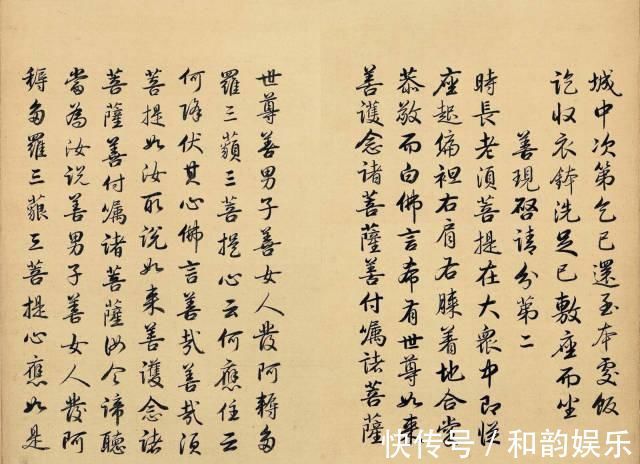 城中次第乞已還至本處飯
訖收衣鉢洗足已敷座而坐
善現啓請分第二
時長老須菩提在大衆中即從
座起偏袒右肩右膝著地合掌
恭敬而白佛言希有世尊如來
善護念諸菩薩善付囑諸菩薩
世尊善男子善女人發阿耨多
羅三藐三菩提心云何應住云
何降伏其心佛言善哉善哉須
菩提如汝所說如來善護念諸
菩薩善付囑諸菩薩汝今諦聽
當為汝說善男子善女人發阿
耨多羅三藐三菩提心應如是
快传号/和韵娱乐